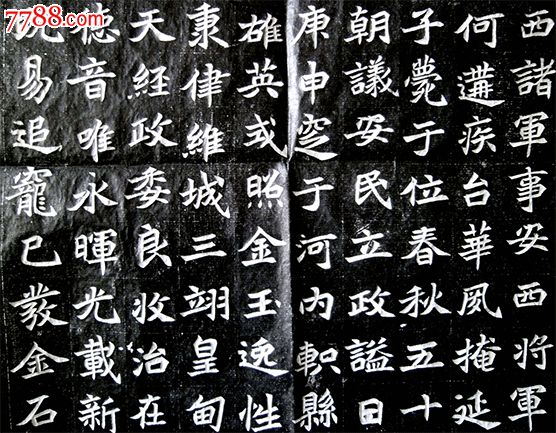 西諸軍事安西將軍
何遘疾台華夙掩延
子薨于位春秋五十
朝議安民立政謚曰
庚申窆于河内軹縣
雄英或照金玉逸性
秉律維城三翊皇甸
天經政委良牧治在
德音唯永暉光載新
易追寵已發金石
7788.com
中国收藏热线